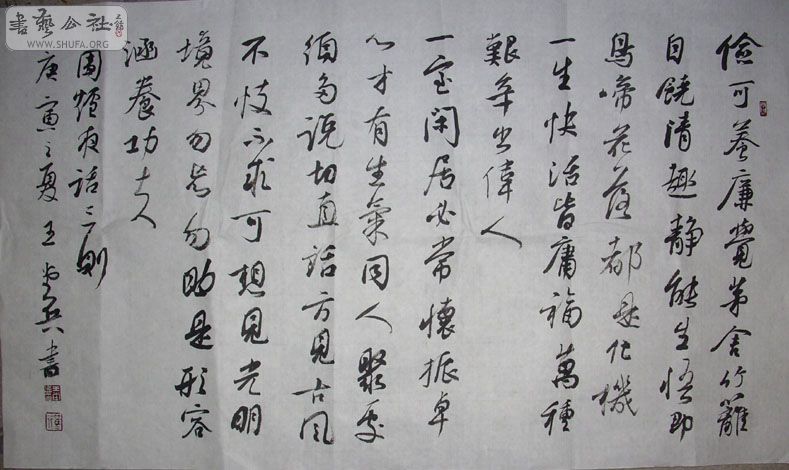 儉可養廉覺茅舍竹籬
自饒清趣靜能生悟即
鳥啼花落都是化機
一生快活皆庸福萬種
艱辛出偉人
一室閑居必常懷振卓
心才有生氣同人聚處
須多說切直話方見古風
不忮不求可想見光明
境界勿忘勿助是形容
涵養功夫
圍爐夜話三則
庚寅之夏王 書
書藝公社
WWW.SHUFA.ORG